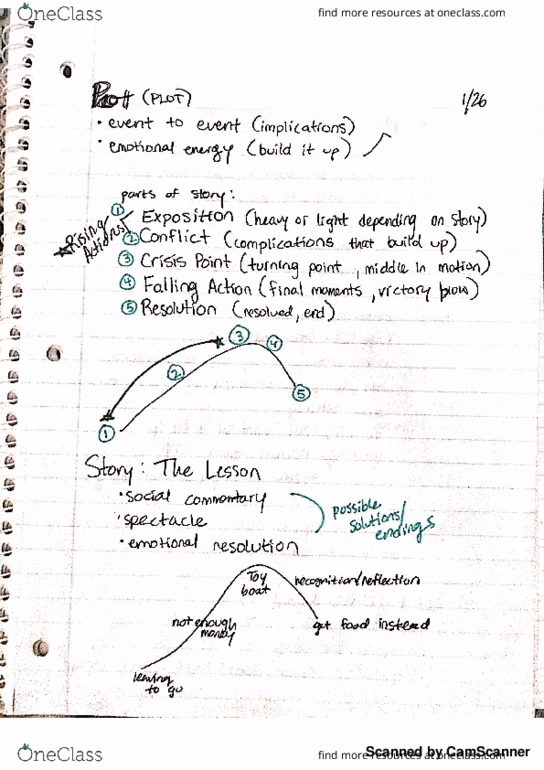 OneClass
find more resources at oneclass.com
Plot (PLOT)
1/26
• event to event (implications)
• emotional energy (build it up)
parts of story:
① Exposition (heavy or light depending on story)
★Rising Actions!
② Conflict (complications that build up)
③ Crisis Point (turning point, middle in motion)
④ Falling Action (final moments, victory blow)
⑤ Resolution (resolved, end)
③
④
②
⑤
①
Story: The Lesson
• social commentary
• spectacle
• emotional resolution
possible
solutions/
endings
Toy
boat
recognition/reflection
not enough
money
get food instead
leaving
to go
OneClass
find more resources at oneclass.com
Scanned by CamScanner